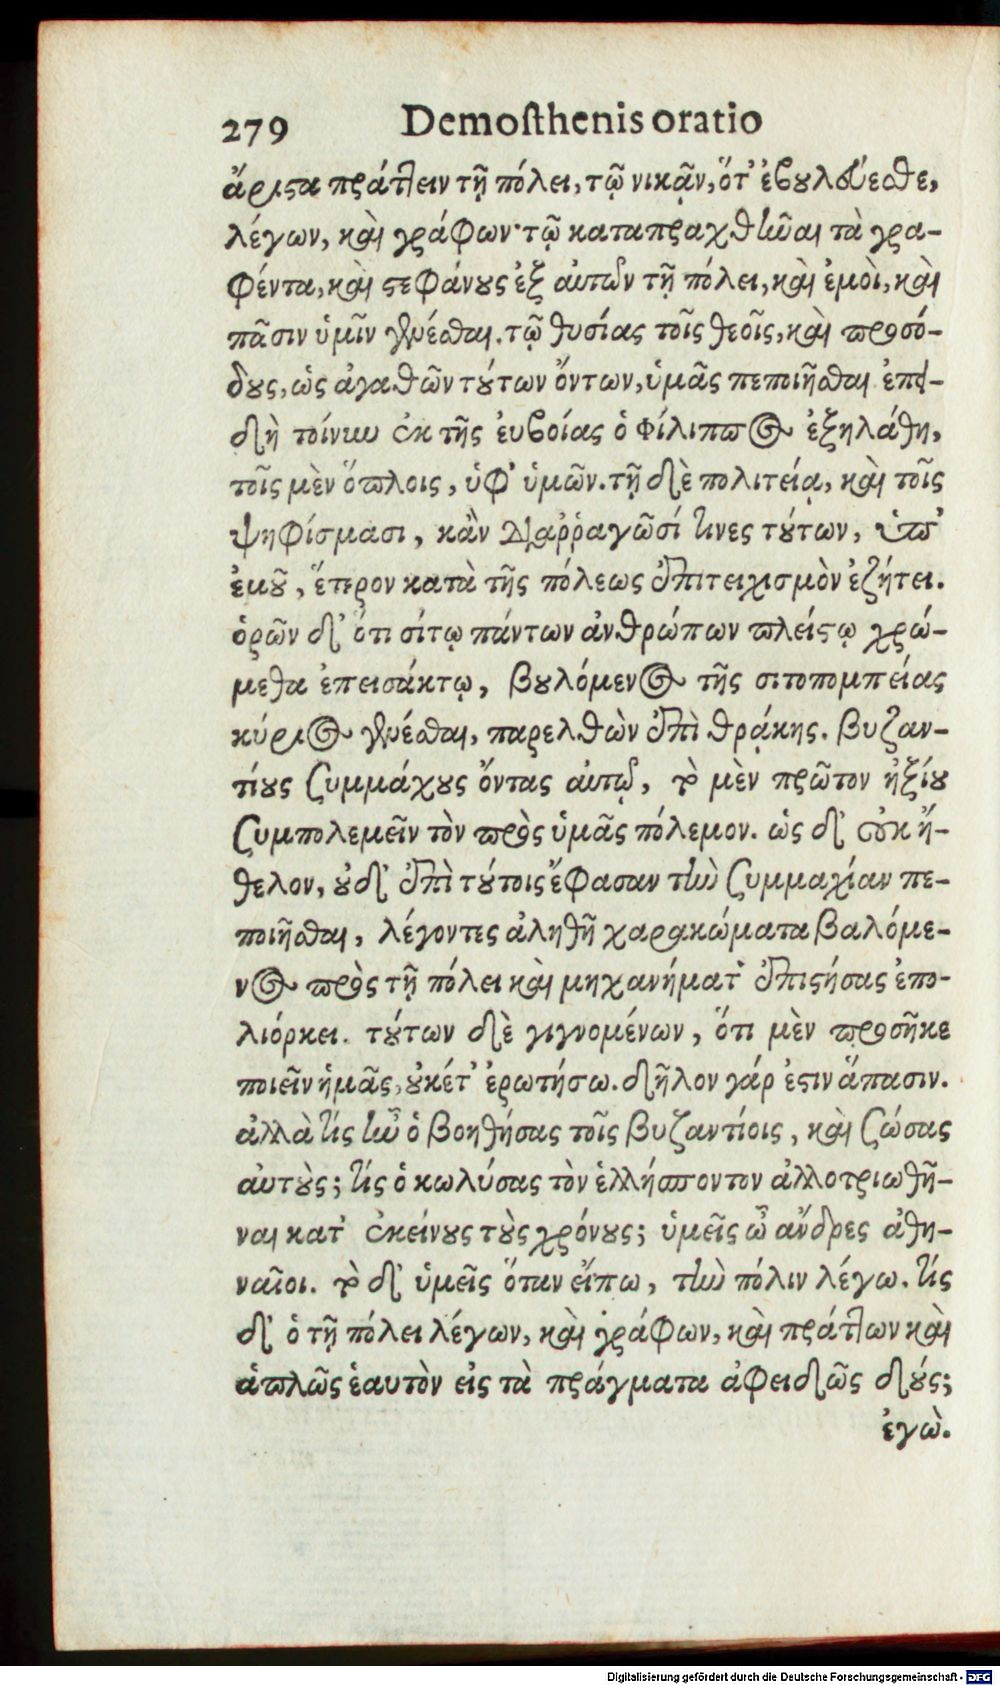 279 Demosthenis oratio
ἄριστα πράττειν τῇ πόλει, τῷ νικᾶν, ὅτ' ἐβουλεύεσθε,
λέγων, καὶ γράφων· τῷ καταπραχθῆναι τὰ γρα-
φέντα, καὶ στεφάνους ἐξ αὐτῶν τῇ πόλει, καὶ ἐμοὶ, καὶ
πᾶσιν ὑμῖν γενέσθαι. τῷ θυσίας τοῖς θεοῖς, καὶ προσό-
δους, ὡς ἀγαθῶν τούτων ὄντων, ὑμᾶς πεποιῆσθαι ἐπει-
δὴ τοίνυν ἐκ τῆς ἐυβοίας ὁ Φίλιππος ἐξηλάθη,
τοῖς μὲν ὅπλοις, ὑφ' ὑμῶν. τῇ δὲ πολιτείᾳ, καὶ τοῖς
ψηφίσμασι, κἂν διαῤῥαγῶσί τινες τούτων, ὑπ'
ἐμοῦ, ἕτερον κατὰ τῆς πόλεως ἐπιτειχισμὸν ἐζήτει.
ὁρῶν δ' ὅτι σίτῳ πάντων ἀνθρώπων πλείστῳ χρώ-
μεθα ἐπεισάκτῳ, βουλόμενος τῆς σιτοπομπείας
κύριος γενέσθαι, παρελθὼν ἐπὶ θρᾴκης. βυζαν-
τίους συμμάχους ὄντας αὐτῷ, τὸ μὲν πρῶτον ἠξίου
συμπολεμεῖν τὸν πρὸς ὑμᾶς πόλεμον. ὡς δ' οὐκ ἤ-
θελον, οὐδ' ἐπὶ τούτοις ἔφασαν τὴν συμμαχίαν πε-
ποιῆσθαι, λέγοντες ἀληθῆ χαρακώματα βαλόμε-
νος πρὸς τῇ πόλει καὶ μηχανήματ' ἐπιστήσας ἐπο-
λιόρκει. τούτων δὲ γιγνομένων, ὅτι μὲν προσῆκε
ποιεῖν ἡμᾶς, οὐκέτ' ἐρωτήσω. δῆλον γάρ ἐστιν ἅπασιν.
ἀλλὰ τίς ἦν ὁ βοηθήσας τοῖς βυζαντίοις, καὶ σώσας
αὐτούς; τίς ὁ κωλύσας τὸν ἑλλήσποντον ἀλλοτριωθῆ-
ναι κατ' ἐκείνους τοὺς χρόνους; ὑμεῖς ὦ ἄνδρες ἀθη-
ναῖοι. τὸ δ' ὑμεῖς ὅταν εἴπω, τὴν πόλιν λέγω. τίς
δ' ὁ τῇ πόλει λέγων, καὶ γράφων, καὶ πράττων καὶ
ἁπλῶς ἑαυτὸν εἰς τὰ πράγματα ἀφειδῶς δούς;
ἐγώ.
Digitalisierung gefördert durch die Deutsche Forschungsgemeinschaft - DFG